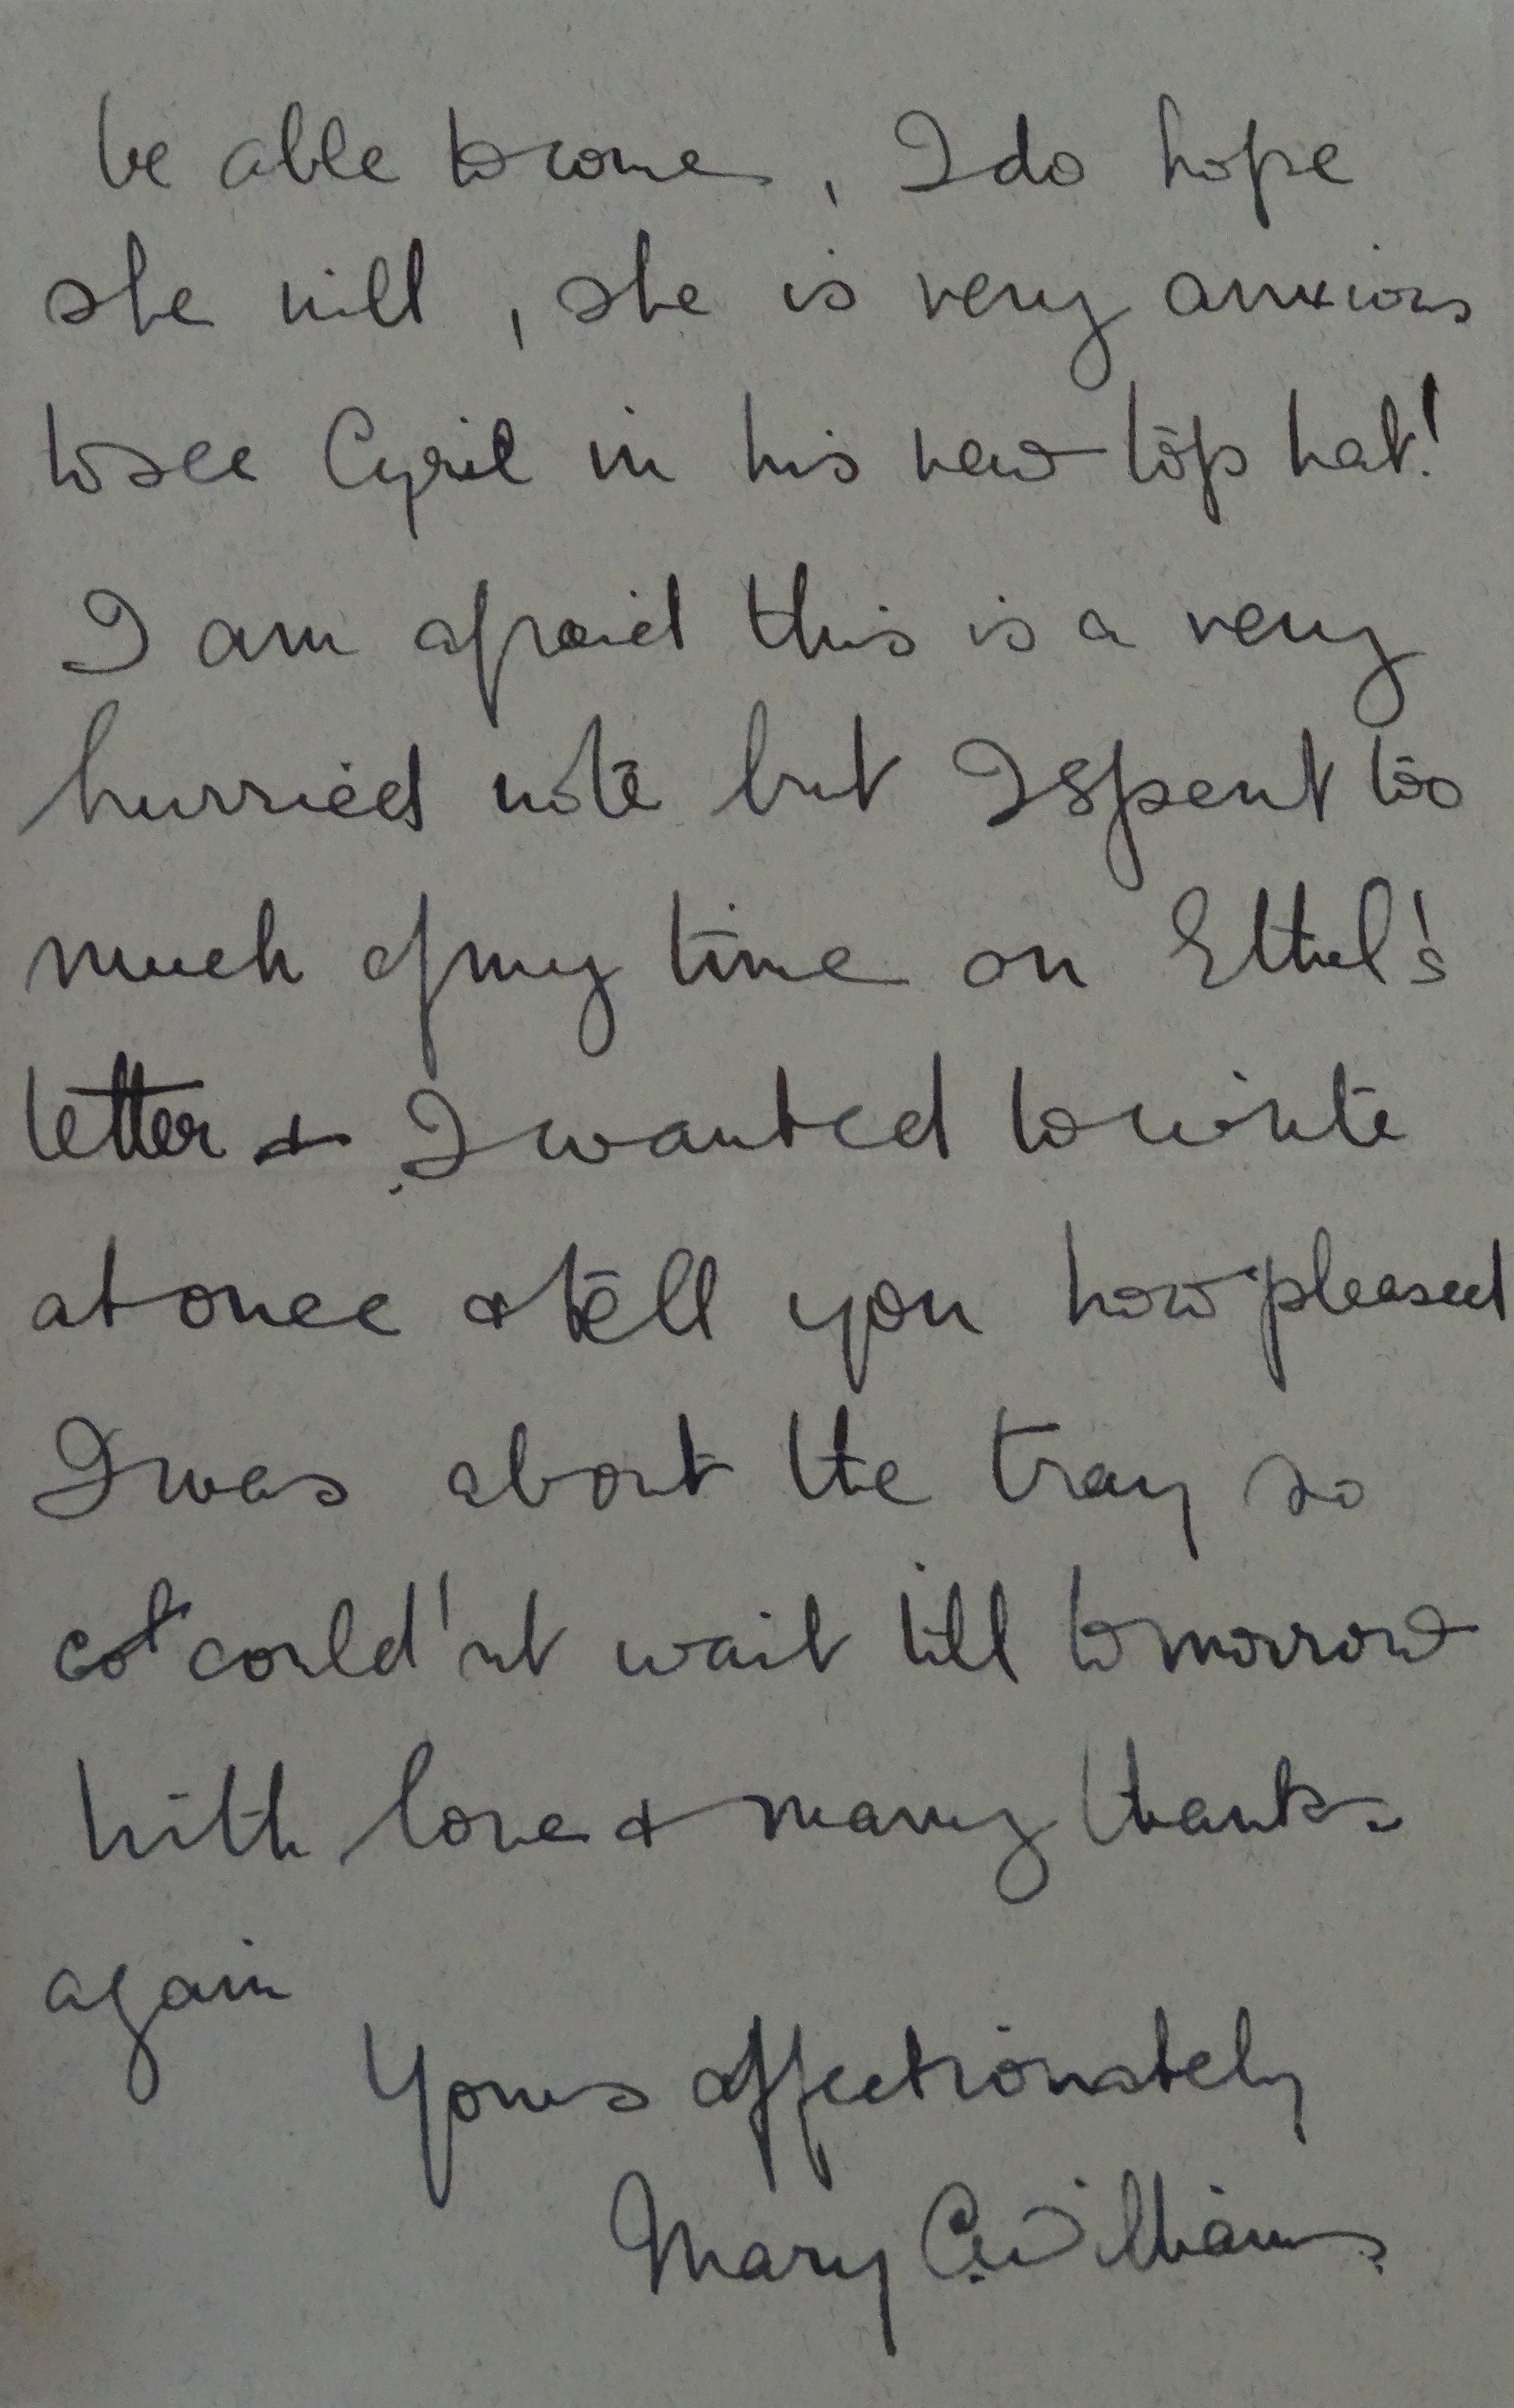 be able to come, I do hope
she will, she is very anxious
to see Cyril in his new top hat!
I am afraid this is a very
hurried note but I spent too
much of my time on Ethel's
letter & I wanted to write
at once & tell you how pleased
I was about the tray so
could'nt wait till tomorrow
With love & many thanks
again
Yours affectionately
Mary C. Williams